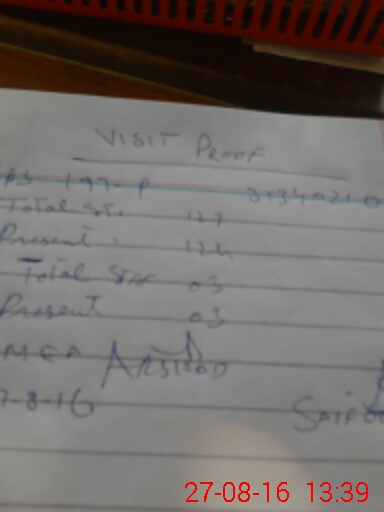 VISIT PROOF
PS 197-P 31340210
Total St. 127
Present. 124
Total Staf 03
Present 03
MEA ARSHAD
7-8-16
27-08-16 13:39